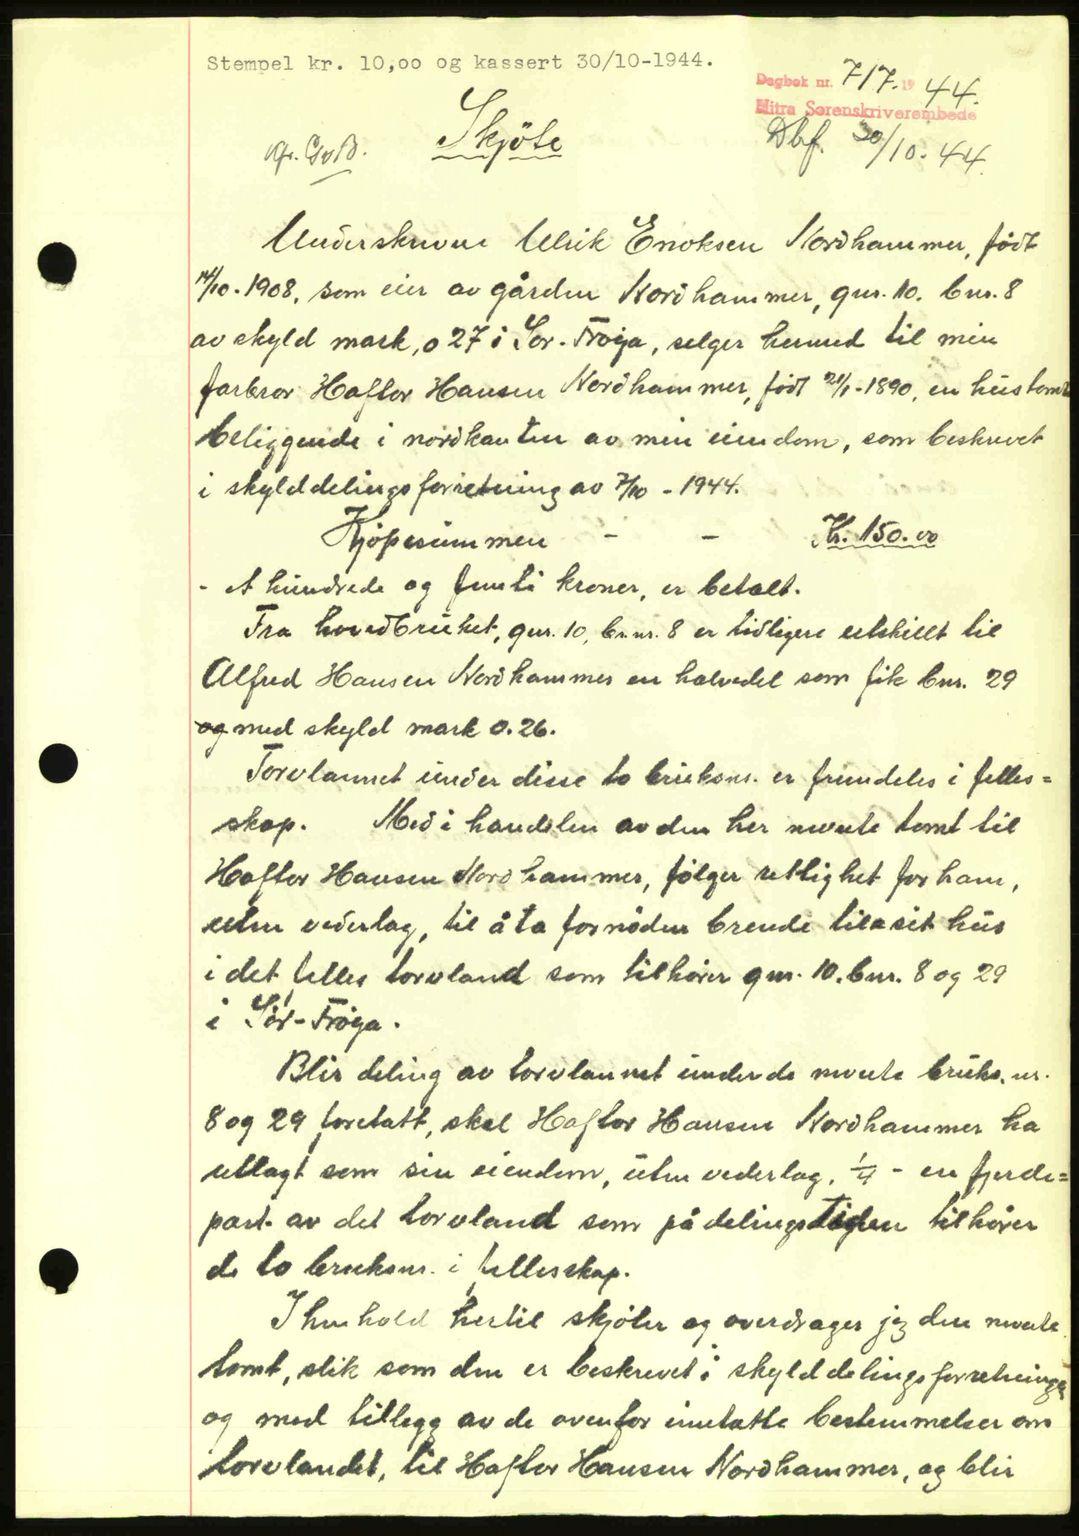 Stempel kr. 10,oo og kassert 30/10-1944.
Dagbok nr. 717. 19 44.
Hitra Sorenskriverembede
Dbf. 30/10-44.
Skjöte
Underskrevne Ulrik Enoksen Nordhammer, født
14/10-1908, som eier av gården Nordhammer, gnr. 10. bnr. 8
av skyld mark, 0 27 i Sør-Frøya, selger hermed til min
farbror Haftor Hansen Nordhammer, født 21/1-1890, en hustomt
beliggende i nordkanten av min eiendom, som beskrevet
i skylddelingsforretning av 7/10-1944.
Kjöpesummen - - Kr. 150.00
- et hundrede og femti kroner, er betalt.
Fra hovedbruket, gnr. 10, br.nr. 8 er tidligere utskillt til
Alfred Hansen Nordhammer en halvedel som fik bnr. 29
og med skyld mark 0.26.
Torvlannet under disse to bruksnr. er fremdeles i felles=
skap. Med i handelen av den her nevnte tomt til
Haftor Hansen Nordhammer, følger rettighet for ham,
uten vederlag, til å ta fornøden brende til sit hus
i det felles torvland som tilhører gnr. 10. bnr. 8 og 29
i Sør-Frøya.
Blir deling av torvlannet under de nevnte bruks.nr.
8 og 29 foretatt, skal Haftor Hansen Nordhammer ha
utlagt som sin eiendom, uten vederlag, 1/4 - en fjerde=
part av det torvland som på delingstiden tilhører
de to bruksnr. i fellesskap.
I henhold hertil skjøter og overdrager jeg den nevnte
tomt, slik som den er beskrevet i skylddelingsforretninga
og med tillegg av de ovenfor inntatte bestemmelser om
torvlandet, til Haftor Hansen Nordhammer, og blir